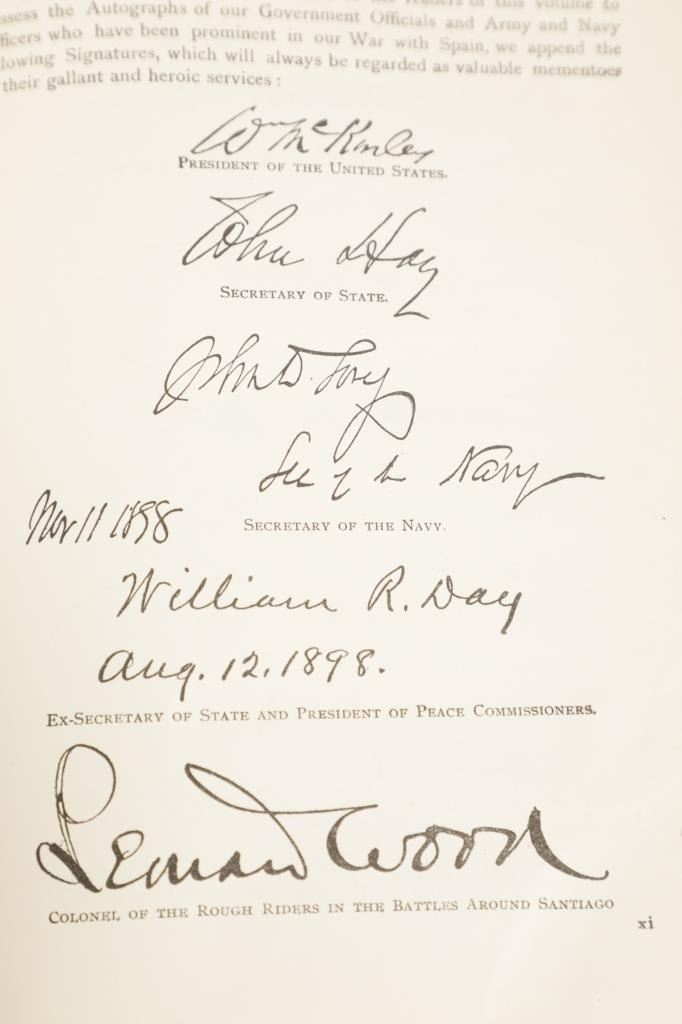 the readers of this volume to
ssess the Autographs of our Government Officials and Army and Navy
fficers who have been prominent in our War with Spain, we append the
lowing Signatures, which will always be regarded as valuable mementoes
their gallant and heroic services:
Wm McKinley
PRESIDENT OF THE UNITED STATES.
John Hay
SECRETARY OF STATE.
John D. Long
Sec Navy
Nov 11 1898
SECRETARY OF THE NAVY.
William R. Day
Aug. 12, 1898.
EX-SECRETARY OF STATE AND PRESIDENT OF PEACE COMMISSIONERS.
Leonard Wood
COLONEL OF THE ROUGH RIDERS IN THE BATTLES AROUND SANTIAGO
xi